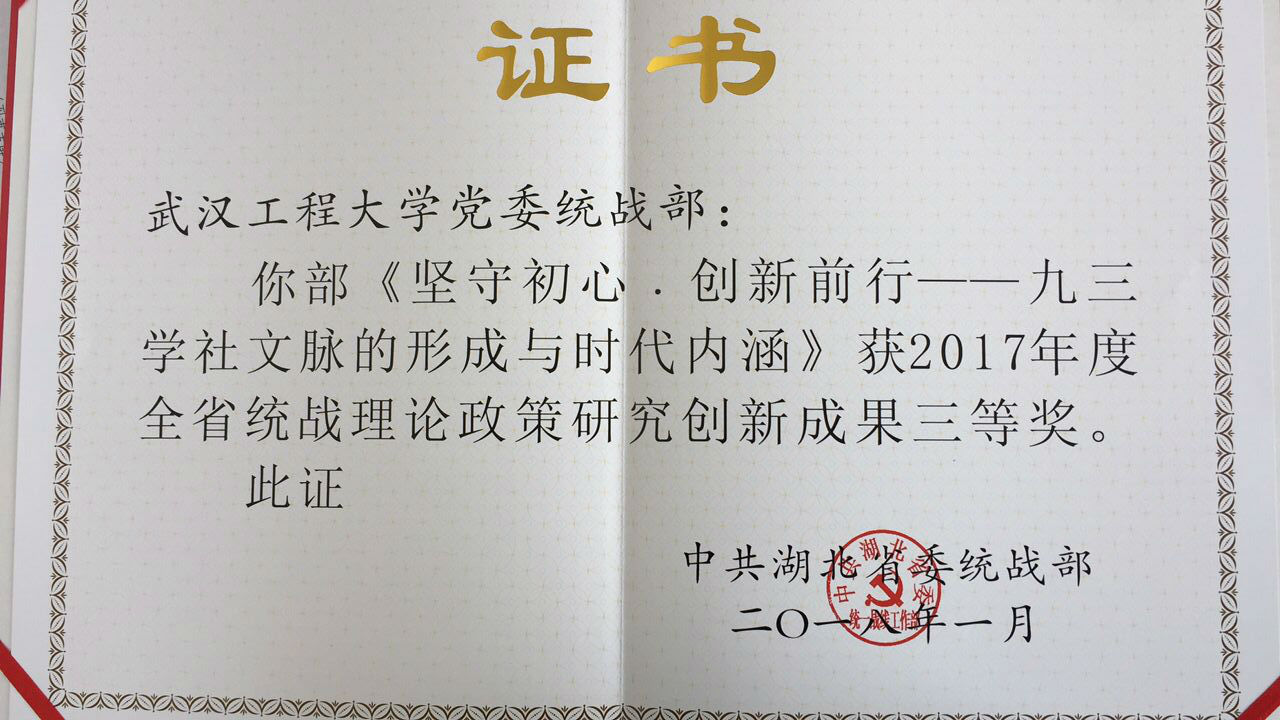 证书
武汉工程大学党委统战部：
你部《坚守初心．创新前行——九三
学社文脉的形成与时代内涵》获2017年度
全省统战理论政策研究创新成果三等奖。
此证
中共湖北省委统战部
二〇一八年一月
中共湖北省委
统一战线工作部